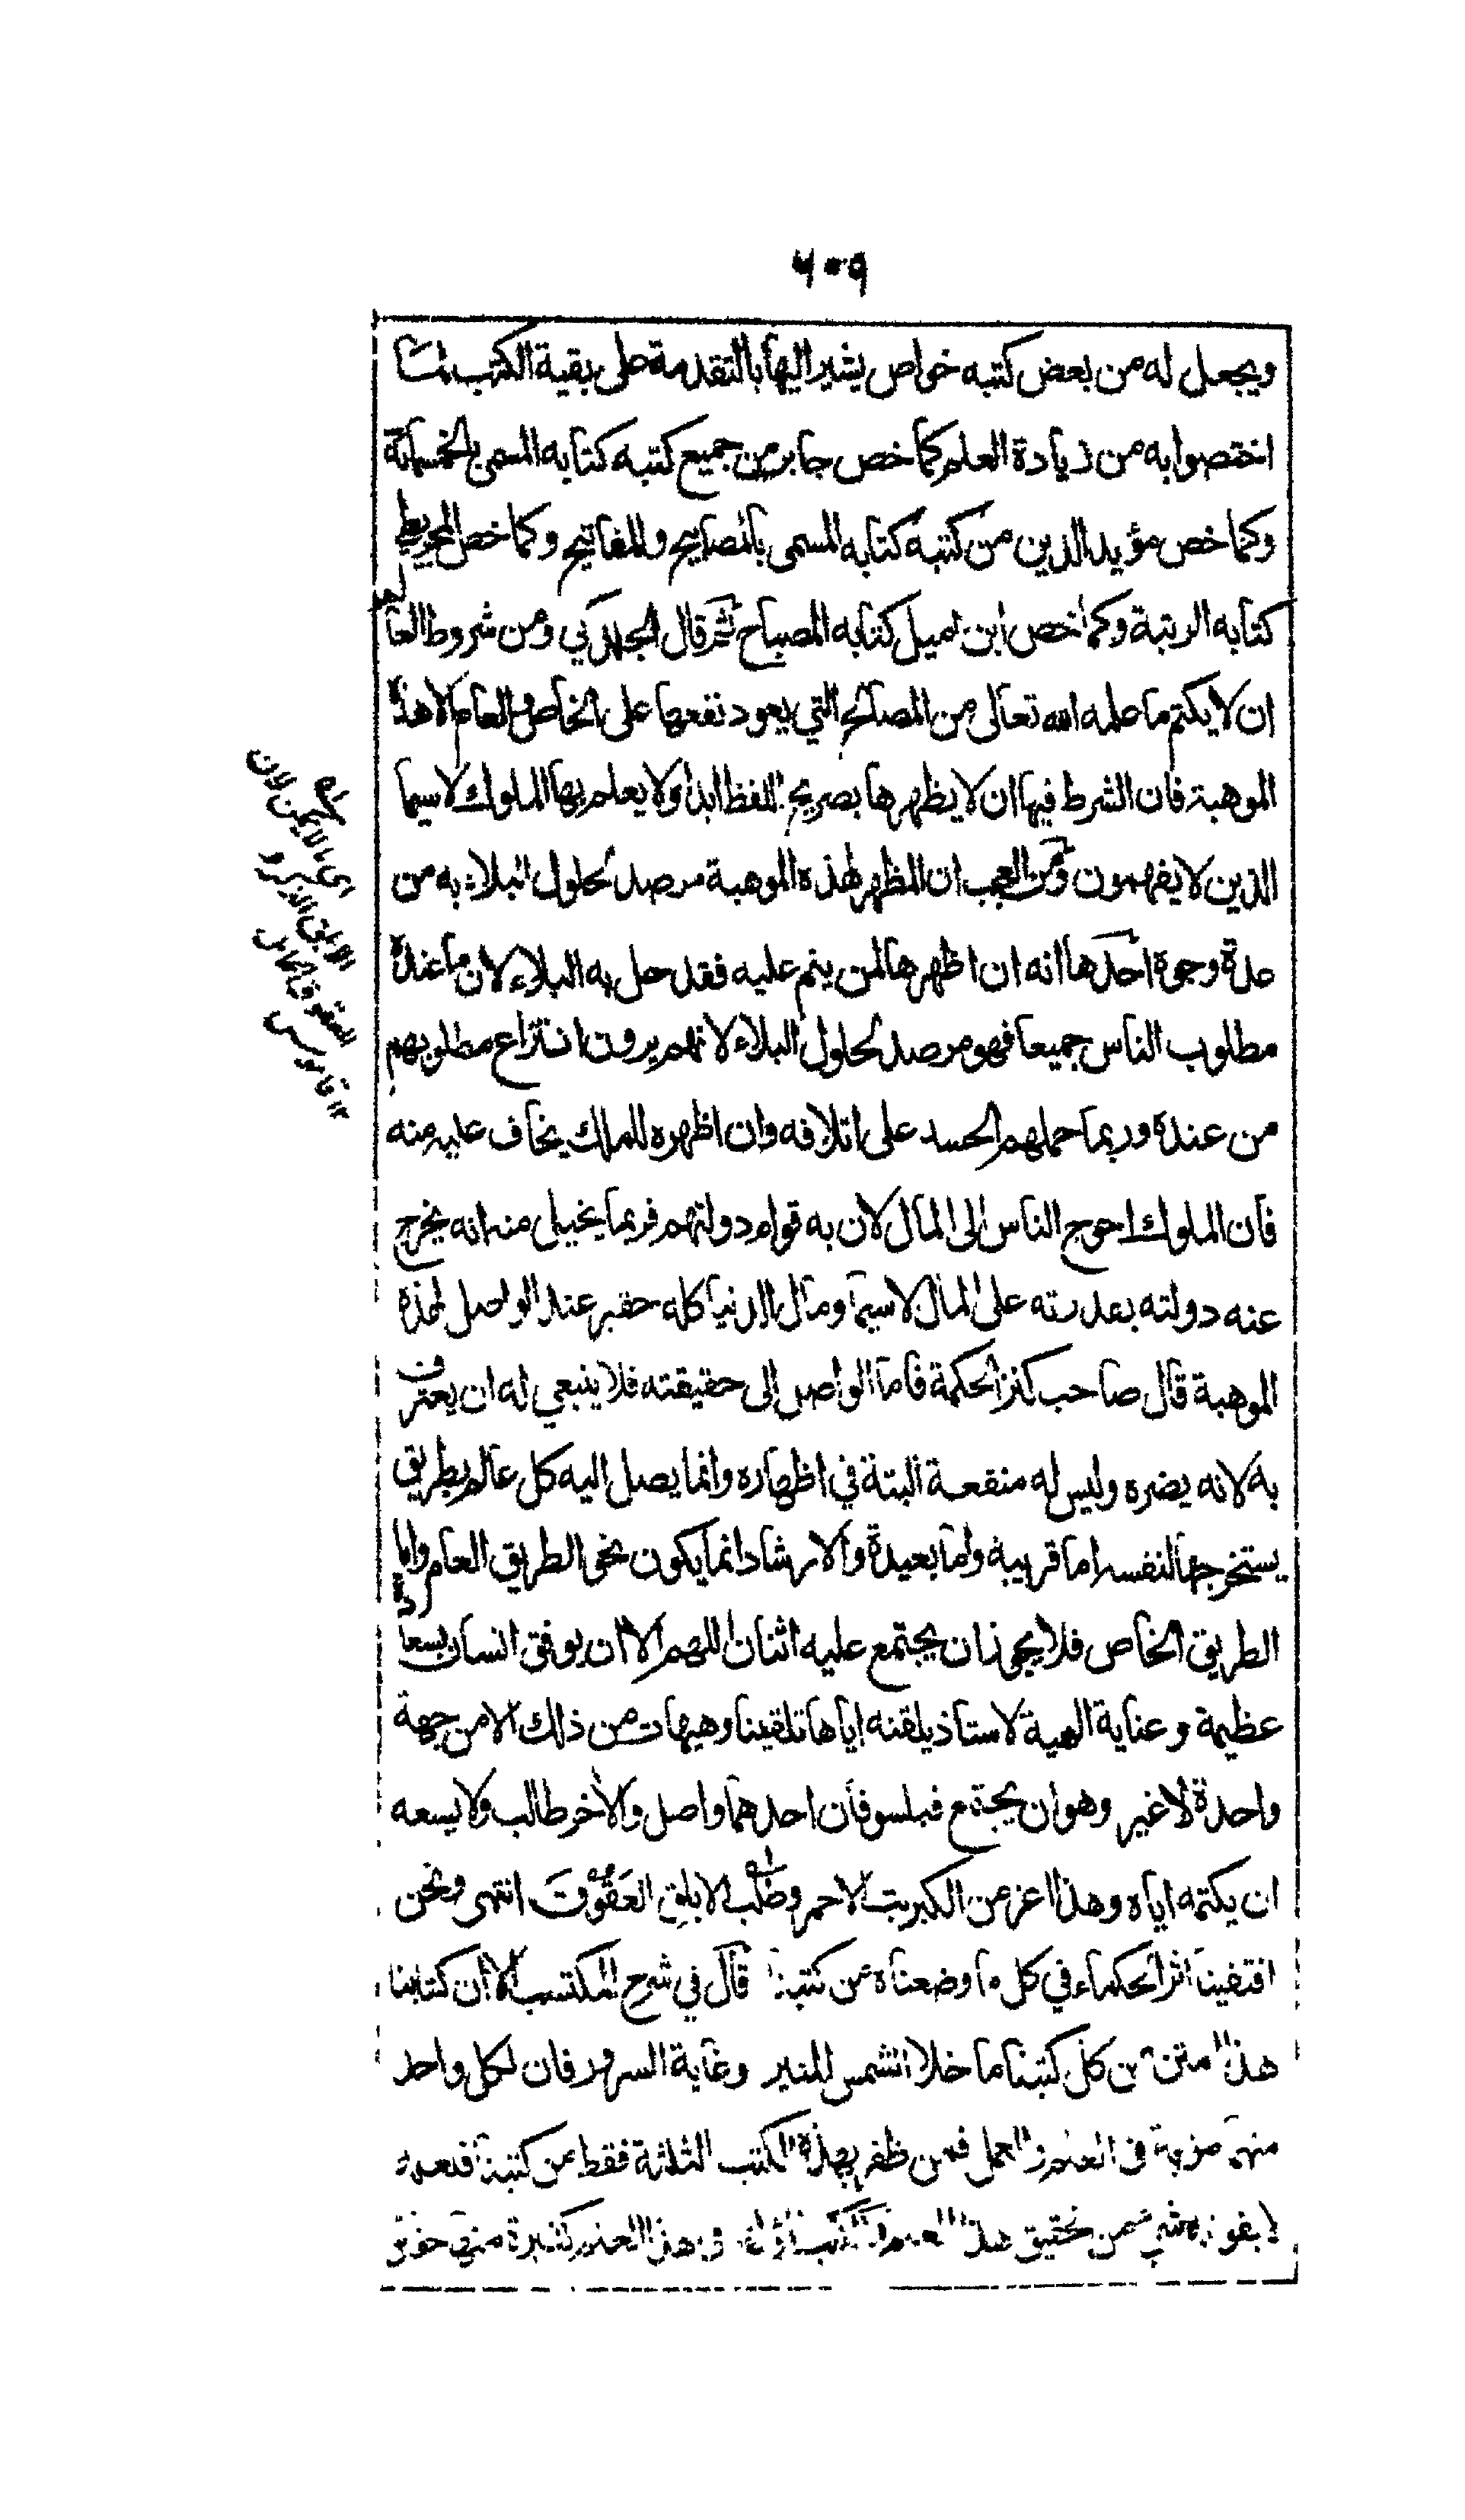 ٦٠٩
ويجعل له من بعض كتبه خواص يشير اليها بالتقدمة على بقية الكتب لما
اختصوا به من زيادة العلم كما خص جابر من جميع كتبه كتابه المسمى بالخمسمائة
وكما خص مؤيد الدين من كتبه كتابه المسمى بالمصابيح والمفاتيح وكما خص المجريطي
كتابه الرتبة وكما خص ابن اميل كتابه المصباح ثم قال الجلدكي ومن شروط العالم
ان لا يكتم ما علمه الله تعالى من المصالح التي يعود نفعها على الخاص والعام الا هذه
الموهبة فان الشرط فيها ان لا يظهرها بصريح اللفظ ابدا ولا يعلم بها الملوك لا سيما
الذين لا يفهمون ومن العجب ان المظهر لهذه الموهبة مرصد لحلول البلاء به من
عدة وجوه احدها انه ان اظهرها لمن ينم عليه فقد حل به البلاء لان ما عنده
مطلوب الناس جميعا فهو مرصد لحلول البلاء لانهم يرون انتزاع مطلوبهم
من عنده وربما حملهم الحسد على اتلافه وان اظهره للملك يخاف عليه منه
فان الملوك احوج الناس الى المال لان به قوام دولتهم فربما يخيل منه انه يخرج
عنه دولته بقدرته على المال لا سيما ومال الدنيا كله حقير عند الواصل لهذه
الموهبة قال صاحب كنز الحكمة فاما الواصل الى حقيقته فلا ينبغي له ان يعترف
به لانه يضره وليس له منفعة البتة في اظهاره وانما يصل اليه كل عالم بطريق
يستخرجها لنفسه اما قريبة واما بعيدة والارشاد انما يكون نحو الطريق العام واما
الطريق الخاص فلا يجوز ان يجتمع عليه اثنان اللهم الا ان يوفق انسان بسعادة
عظيمة وعناية الهية لاستاذ يلقنه اياها تلقينا وهيهات من ذلك الا من جهة
واحدة لا غير وهو ان يجتمع فيلسوفان احدهما واصل والاخر طالب ولا يسعه
ان يكتمه اياه وهذا اعز من الكبريت الاحمر وطلب الابلق العقوق انتهى ونحن
اقتفينا اثر الحكماء في كل ما وضعناه من كتبنا قال في شرح المكتسب الا ان كتابنا
هذا امتن من كل كتبنا ما خلا الشمس المنير وغاية السرور فان لكل واحد
منهما مزية في العلم والعمل فمن ظفر بهذه الكتب الثلاثة فقط من كتبنا فلعله
لا يفوته شيء من تحقيق هذا العلم والكتب في هذا العلم كثيرة منها
الابلق
العقوق
قاموس